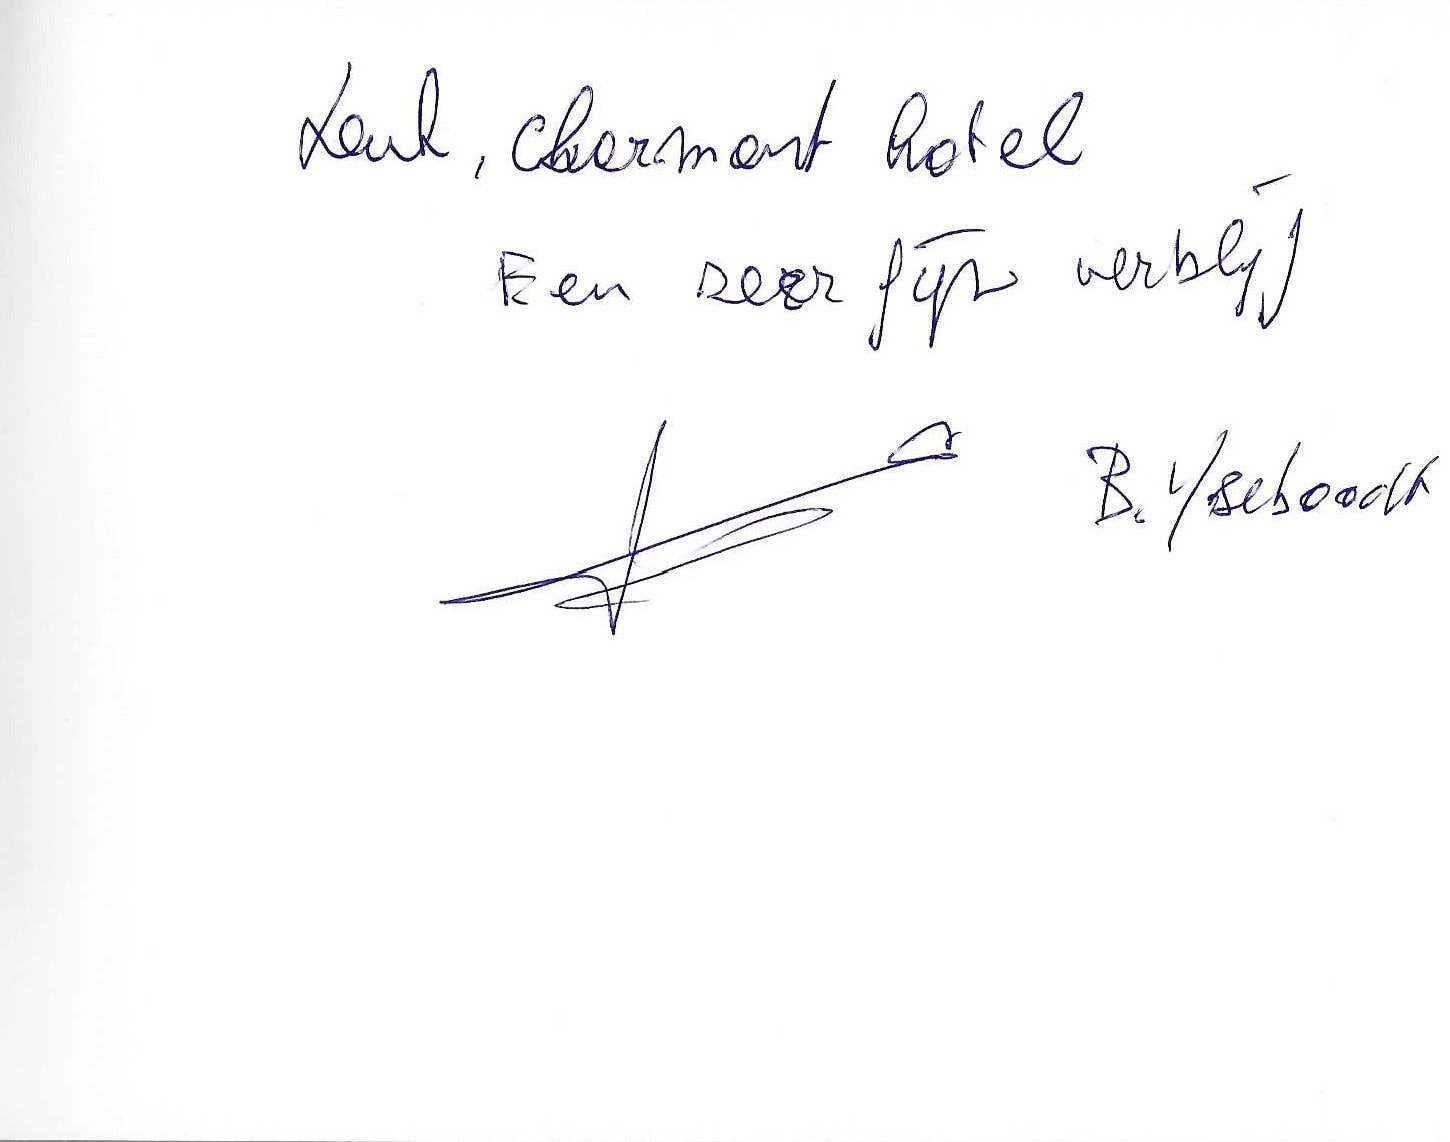 Leuk, charmant hotel
Een zeer fijn verblijf
B. Ysebaert